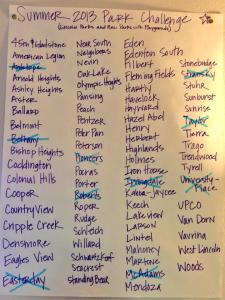 Summer 2013 Park Challenge
(Lincoln Parks and Rec Parks with Playgrounds)
45th &
American Legion
Antelope
Arnold Heights
Ashley Heights
Aster
Ballard
Belmont
Bethany
Bishop Heights
Coddington
Colonial Hills
Cooper
Country View
Cripple Creek
Densmore
Eagles View
Easterday
Near South
Neighbors
Nevin
Oak Lake
Olympic Heights
Pansing
Peach
Pentzer
Peter Pan
Peterson
Pioneers
Pocras
Porter
Roberts
Roper
Rudge
Schleich
Willard
Schwartzkopf
Seacrest
Standing Bear
Eden
Edenton South
Filbert
Fleming Fields
Hartley
Havelock
Hayward
Hazel Abel
Henry
Herbert
Highlands
Holmes
Iron Horse
Irvingdale
Kahoa-Jaycee
Keech
Lakeview
Larson
Lintel
Mahoney
Martone
McAdams
Mendoza
Stonebridge
Stransky
Stuhr
Sunburst
Sunrise
Taylor
Tierra
Trago
Trendwood
Tyrrell
University Place
UPCO
Van Dorn
Vavrina
West Lincoln
Woods